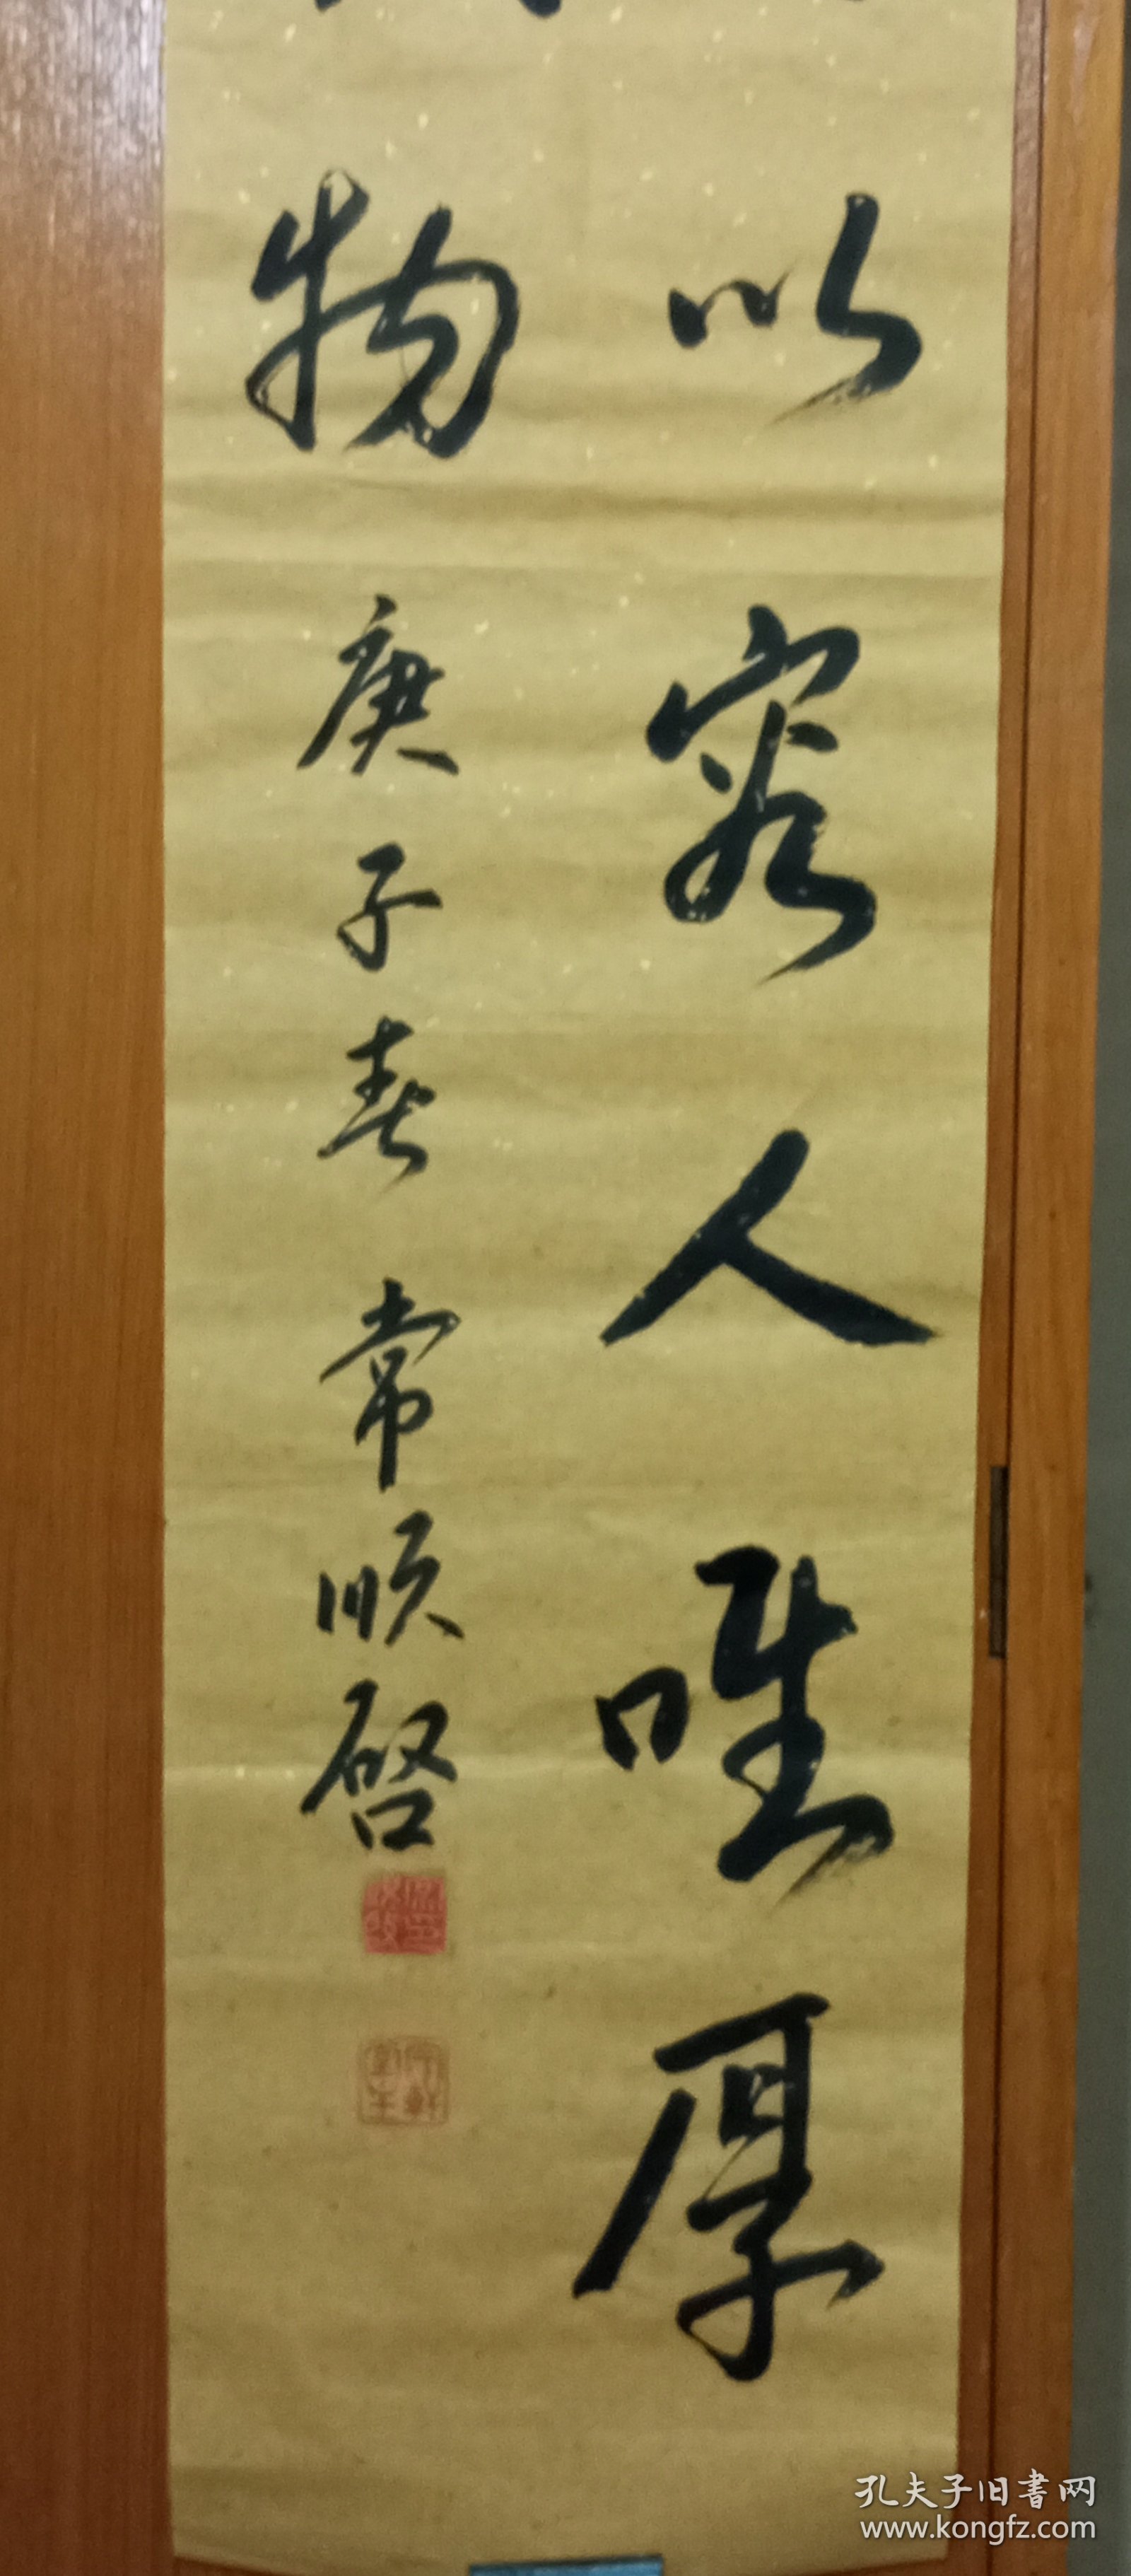 以容人唯厚
物
庚子春 常顺启
孔夫子旧書网
www.kongfz.com